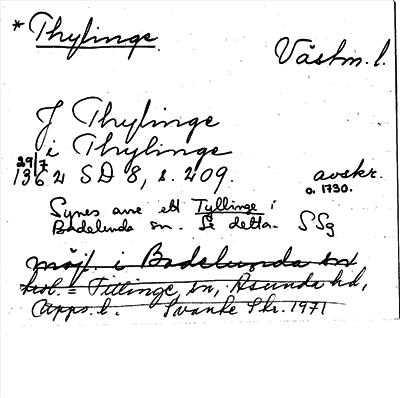 * Thylinge
Västm. l.
J Thylinge
i Thylinge
29/7
1362 SD 8, s. 209. avskr.
o. 1730.
Synes avse ett Tyllinge i
Badelunda sn. Se detta. SSg
möjl. i Badelunda sn
= Tillinge sn, Åsunda hd,
Upps. l. Svante Skr. 1971